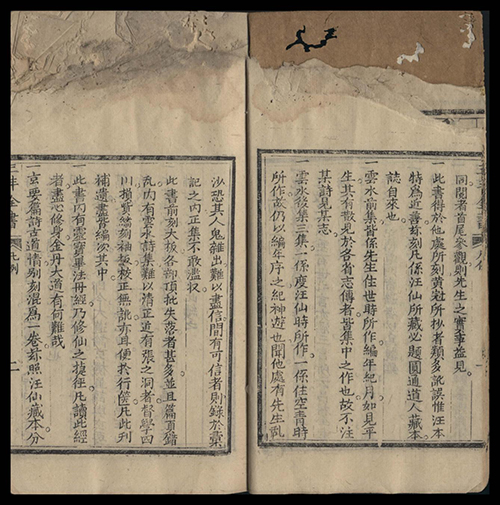 同閱者首尾參觀則先生之實事益見
一此書得於他處所刻黃冠所抄者類多訛誤惟汪本
特爲近善茲刻凡係汪仙所藏必題圓通道人藏本
誌自來也
一雲水前集皆係先生住世時所作編年紀月如見平
生其有散見於各省志傳者皆集中之作也故不注
某詩見某志
一雲水後集三集一係度汪仙時所作一係住空青時
所作茲仍以編年序之紀神遊也聞他處有先生乩
沙恐其人鬼雜出難以盡信間有可信者則錄於彙
記之內正集不敢濫收
此書前刻大板各部頂批失落者甚多並且篇頁錯
亂內有雲水詩集難以清正道有張之洞者督學四
川損資纂刻袖板校正無訛亦且便於行篋凡此刊
補遺盡皆編次其中
一此書內有靈寶畢法丹經乃修仙之捷徑凡讀此經
者盡心修身金丹大道有何難哉
一玄要篇詩道情別刻混爲一卷茲照汪仙藏本分
三丰全書 凡例 二